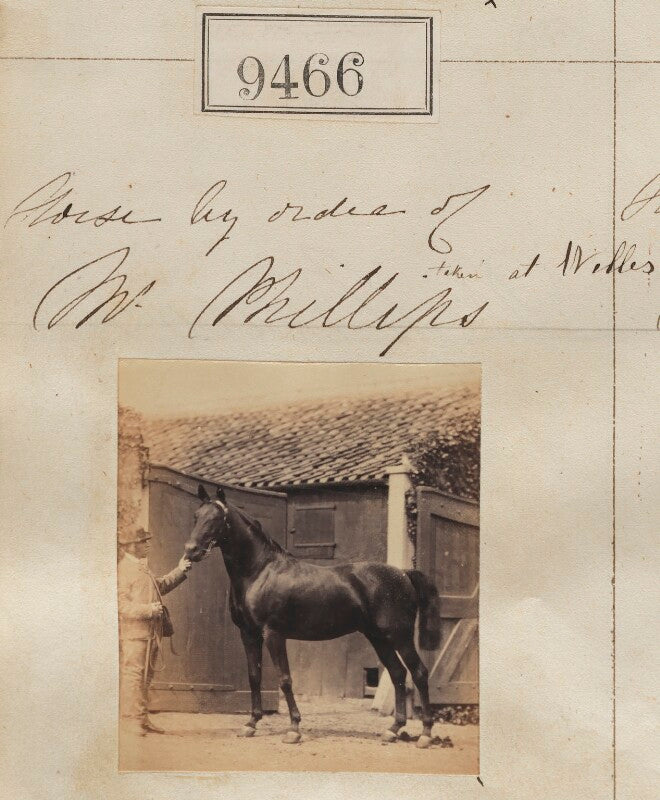 9466
Horse by order of
Mr. Phillips taken at Willes